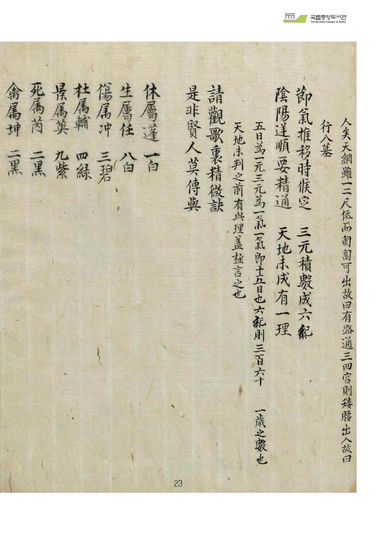 국립중앙도서관
人矣天網雖一二尺低而匍匐可出故曰有路通三四宮則矮腰出入故曰
行入墓
節氣推移時候定 三元積數成六紀
陰陽逆順要精通 天地未成有一理
五日為一元三元為一氣一氣即十五日也六紀則三百六十 一歲之數也
天地未判之前有此理盖極言之也
請觀歌裏精微訣
是非賢人莫傳與
休屬蓬 一白
生屬任 八白
傷屬冲 三碧
杜屬輔 四綠
景屬英 九紫
死屬芮 二黑
禽屬坤 二黑
23